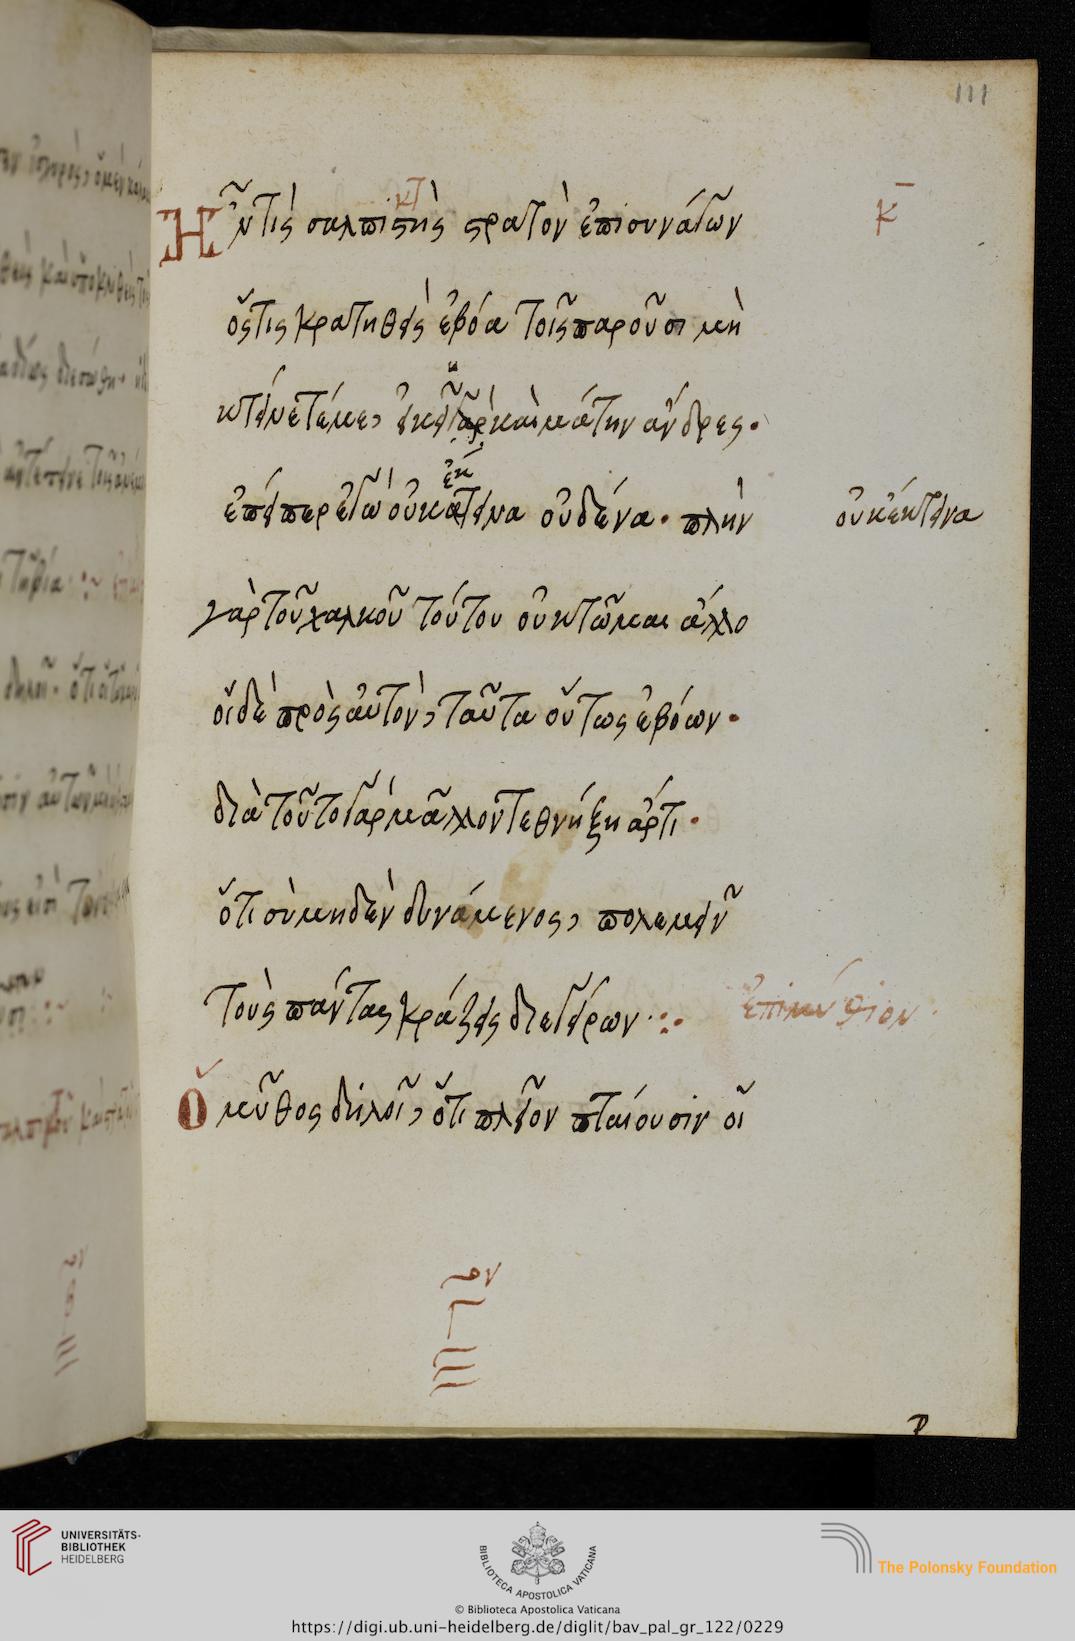 111
Ἦν τις σαλπιστὴς στρατὸν ἐπισυνάγων κ̄
ὅςτις κρατηθεὶς ἐβόα τοῖς παροῦσι μὴ
κτείνετέ με, εἰκῆ γὰρ καὶ μάτην ἄνδρες·
ἐπείπερ ἐγὼ οὐκ ἀτεινα οὐδένα· πλὴν οὐκ ἔκτεινα
ἐκ
γὰρ τοῦ χαλκοῦ τούτου οὐ κτῶμαι ἄλλο
οἱ δὲ πρὸς αὐτὸν, ταῦτα οὕτως ἐβόων·
διὰ τοῦτο γὰρ μᾶλλον τεθνήξη ἄρτι·
ὅτι σὺ μηδὲν δυνάμενος, πολεμεῖν
τοὺς πάντας κράζεις διεγείρων· ἐπιμύθιον·
Ὁ μῦθος δηλοῖ, ὅτι πλεῖον πταίουσιν οἱ
UNIVERSITÄTS-
BIBLIOTHEK
HEIDELBERG
BIBLIOTECA APOSTOLICA VATICANA
The Polonsky Foundation
© Biblioteca Apostolica Vaticana
https://digi.ub.uni-heidelberg.de/diglit/bav_pal_gr_122/0229